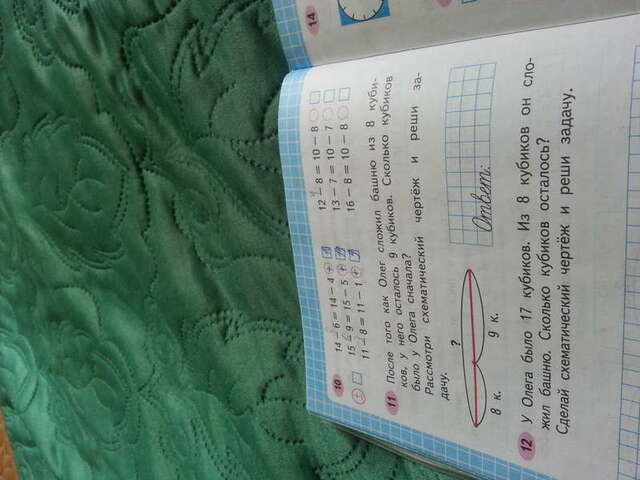 10
14 − 6 = 14 − 4
15 − 9 = 15 − 5
11 − 8 = 11 − 1
12 − 8 = 10 − 8
13 − 7 = 10 − 7
16 − 8 = 10 − 8
11 После того как Олег сложил башню из 8 куби-
ков, у него осталось 9 кубиков. Сколько кубиков
было у Олега сначала?
Рассмотри схематический чертёж и реши за-
дачу.
?
8 к. 9 к.
Ответ:
12 У Олега было 17 кубиков. Из 8 кубиков он сло-
жил башню. Сколько кубиков осталось?
Сделай схематический чертёж и реши задачу.
14